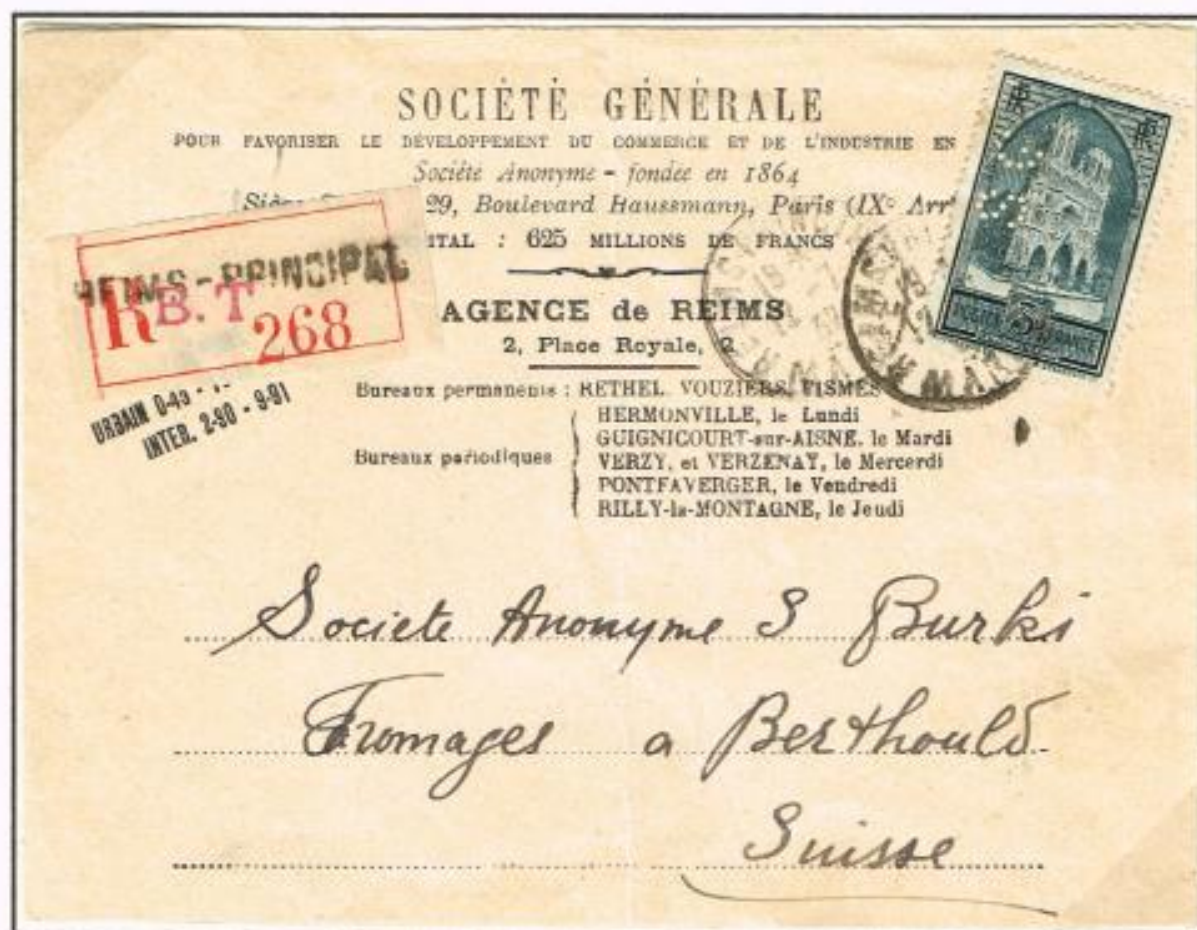 SOCIÉTÉ GÉNÉRALE
POUR FAVORISER LE DÉVELOPPEMENT DU COMMERCE ET DE L'INDUSTRIE EN
Société Anonyme - fondée en 1864
29, Boulevard Haussmann, Paris (IXᵉ Arrᵗ
: 625 MILLIONS DE FRANCS
REIMS - PRINCIPAL
R B. T 268
AGENCE de REIMS
2, Place Royale, 2
URBAIN
INTER. 2-90 - 9-91
Bureaux permanents : RETHEL VOUZIERS FISMES
Bureaux périodiques
HERMONVILLE, le Lundi
GUIGNICOURT-sur-AISNE, le Mardi
VERZY, et VERZENAY, le Mercerdi
PONTFAVERGER, le Vendredi
RILLY-la-MONTAGNE, le Jeudi
RF
RF
POSTES 3F FRANCE
Societe Anonyme S Burki
Fromages a Berthould
Suisse